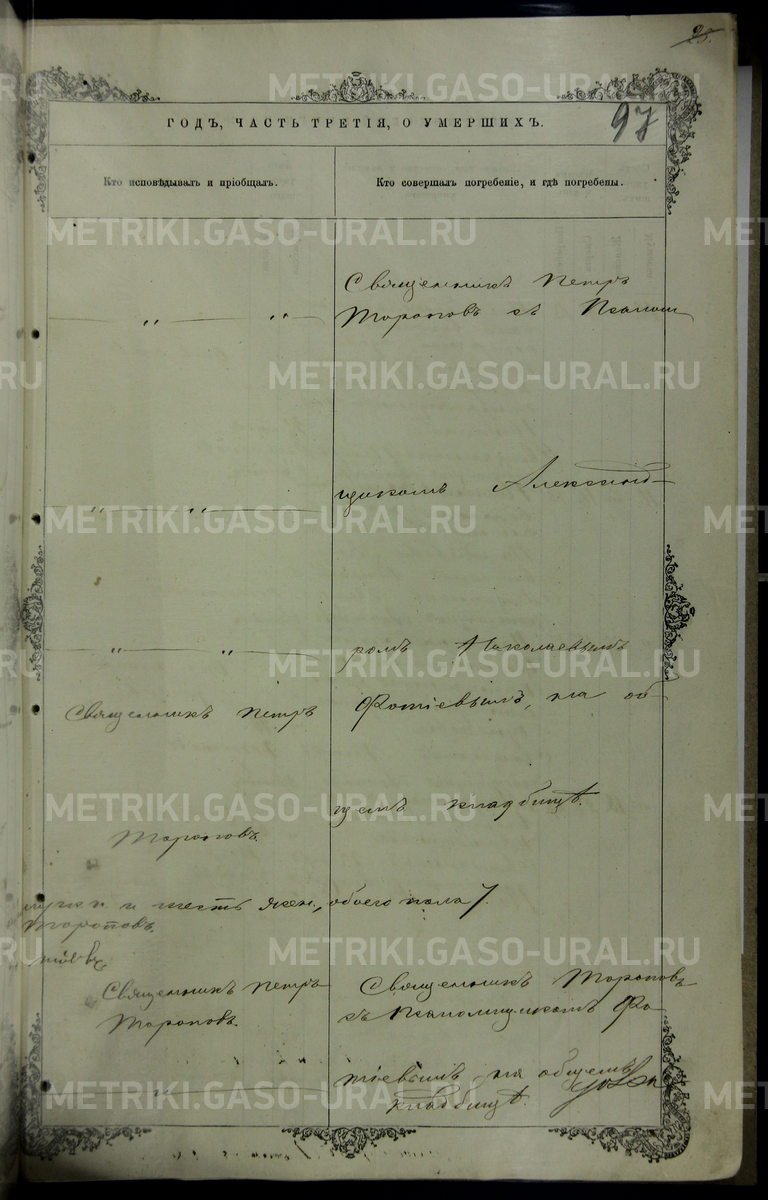 25.
97
ГОДЪ, ЧАСТЬ ТРЕТІЯ, О УМЕРШИХЪ.
Кто исповѣдывалъ и пріобщалъ.
Кто совершалъ погребеніе, и гдѣ погребены.
Священникъ Петръ
„ „ Тороповъ съ Псалом
„ „ щикомъ Александ-
„ „ ромъ Николаевымъ
Священникъ Петръ
Фотіевымъ, на об
щемъ кладбищѣ.
Тороповъ.
и шесть жен., обоего пола 7.
Тороповъ.
Священникъ Петръ
Тороповъ.
Священникъ Тороповъ
съ Псаломщикомъ Фо
тіевымъ на общемъ
кладбищѣ.
METRIKI.GASO-URAL.RU